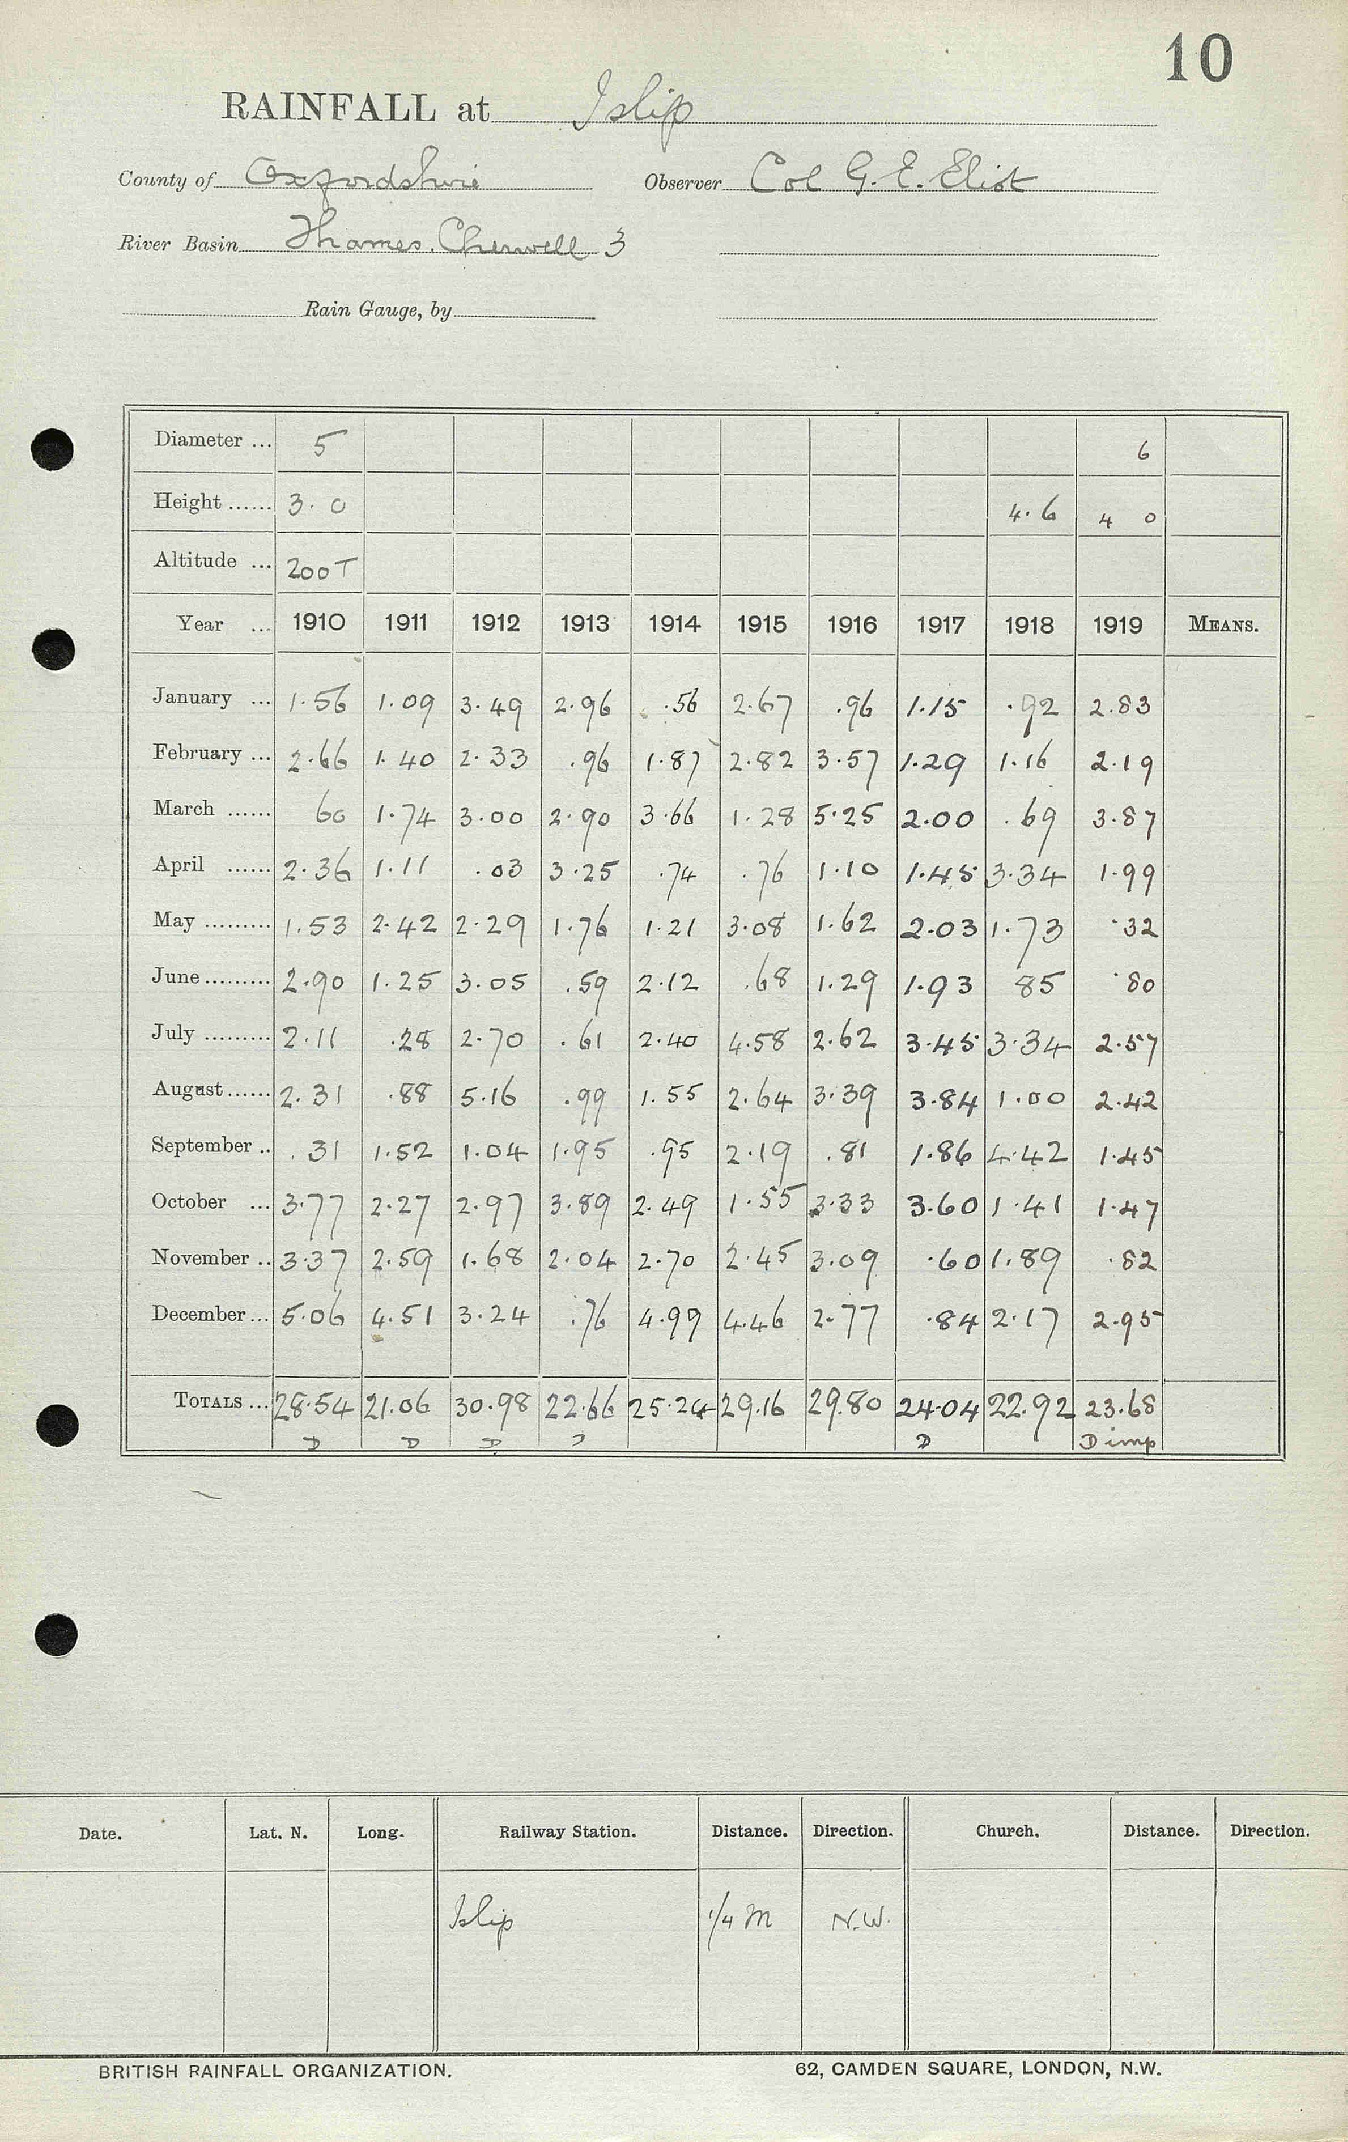 10
RAINFALL at Islip
County of Oxfordshire Observer Col G. E. Eliot
River Basin Thames. Cherwell 3
Rain Gauge, by
Diameter ... 5 6
Height ...... 3. 0 4.6 4 0
Altitude ... 200T
Year ... 1910 1911 1912 1913 1914 1915 1916 1917 1918 1919 MEANS.
January ... 1.56 1.09 3.49 2.96 .56 2.67 .96 1.15 .92 2.83
February ... 2.66 1.40 2.33 .96 1.87 2.82 3.57 1.29 1.16 2.19
March ...... 60 1.74 3.00 2.90 3.66 1.28 5.25 2.00 .69 3.87
April ...... 2.36 1.11 .03 3.25 .74 .76 1.10 1.45 3.34 1.99
May ......... 1.53 2.42 2.29 1.76 1.21 3.08 1.62 2.03 1.73 .32
June ......... 2.90 1.25 3.05 .59 2.12 .68 1.29 1.93 85 .80
July ......... 2.11 .28 2.70 .61 2.40 4.58 2.62 3.45 3.34 2.57
August ...... 2.31 .88 5.16 .99 1.55 2.64 3.39 3.84 1.00 2.42
September .. .31 1.52 1.04 1.95 .95 2.19 .81 1.86 4.42 1.45
October ... 3.77 2.27 2.97 3.89 2.49 1.55 3.33 3.60 1.41 1.47
November .. 3.37 2.59 1.68 2.04 2.70 2.45 3.09 .60 1.89 .82
December ... 5.06 4.51 3.24 .76 4.99 4.46 2.77 .84 2.17 2.95
TOTALS ... 28.54 21.06 30.98 22.66 25.24 29.16 29.80 24.04 22.92 23.68
D D D D D D imp
Date. Lat. N. Long. Railway Station. Distance. Direction. Church. Distance. Direction.
Islip 1/4 M N.W.
BRITISH RAINFALL ORGANIZATION. 62, CAMDEN SQUARE, LONDON, N.W.